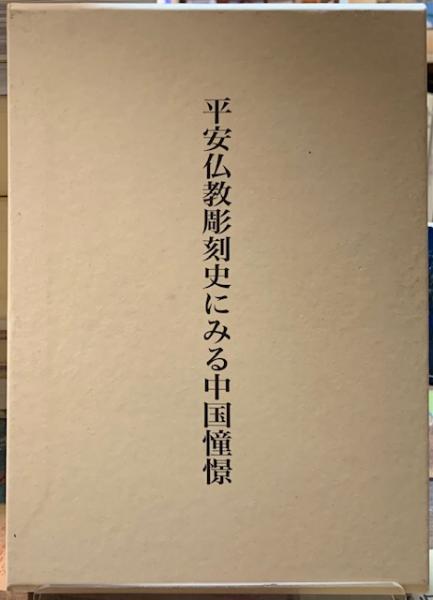 平安仏教彫刻史にみる中国憧憬